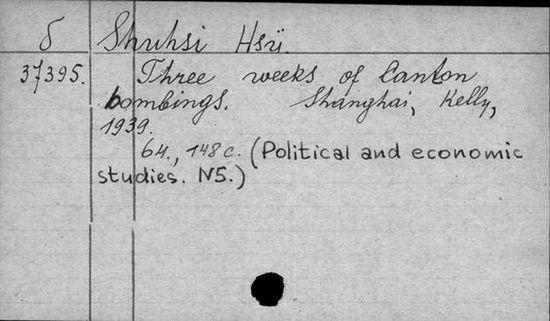 б Shuhsi Hsü.
37395. Three weeks of Canton
bombings. Shanghai, Kelly,
1939.
64., 148 c. (Political and economic
studies. N5.)